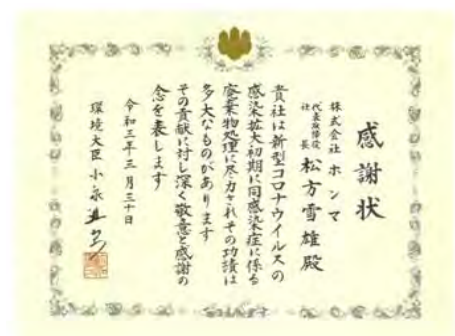 感謝状
株式会社 ホンマ
代表取締役
社長 松方雪雄殿
貴社は新型コロナウイルスの
感染拡大初期に同感染症に係る
廃棄物処理に尽力されその功績は
多大なものがあります
その貢献に対し深く敬意と感謝の
念を表します
令和三年三月三十日
環境大臣 小泉進次郎